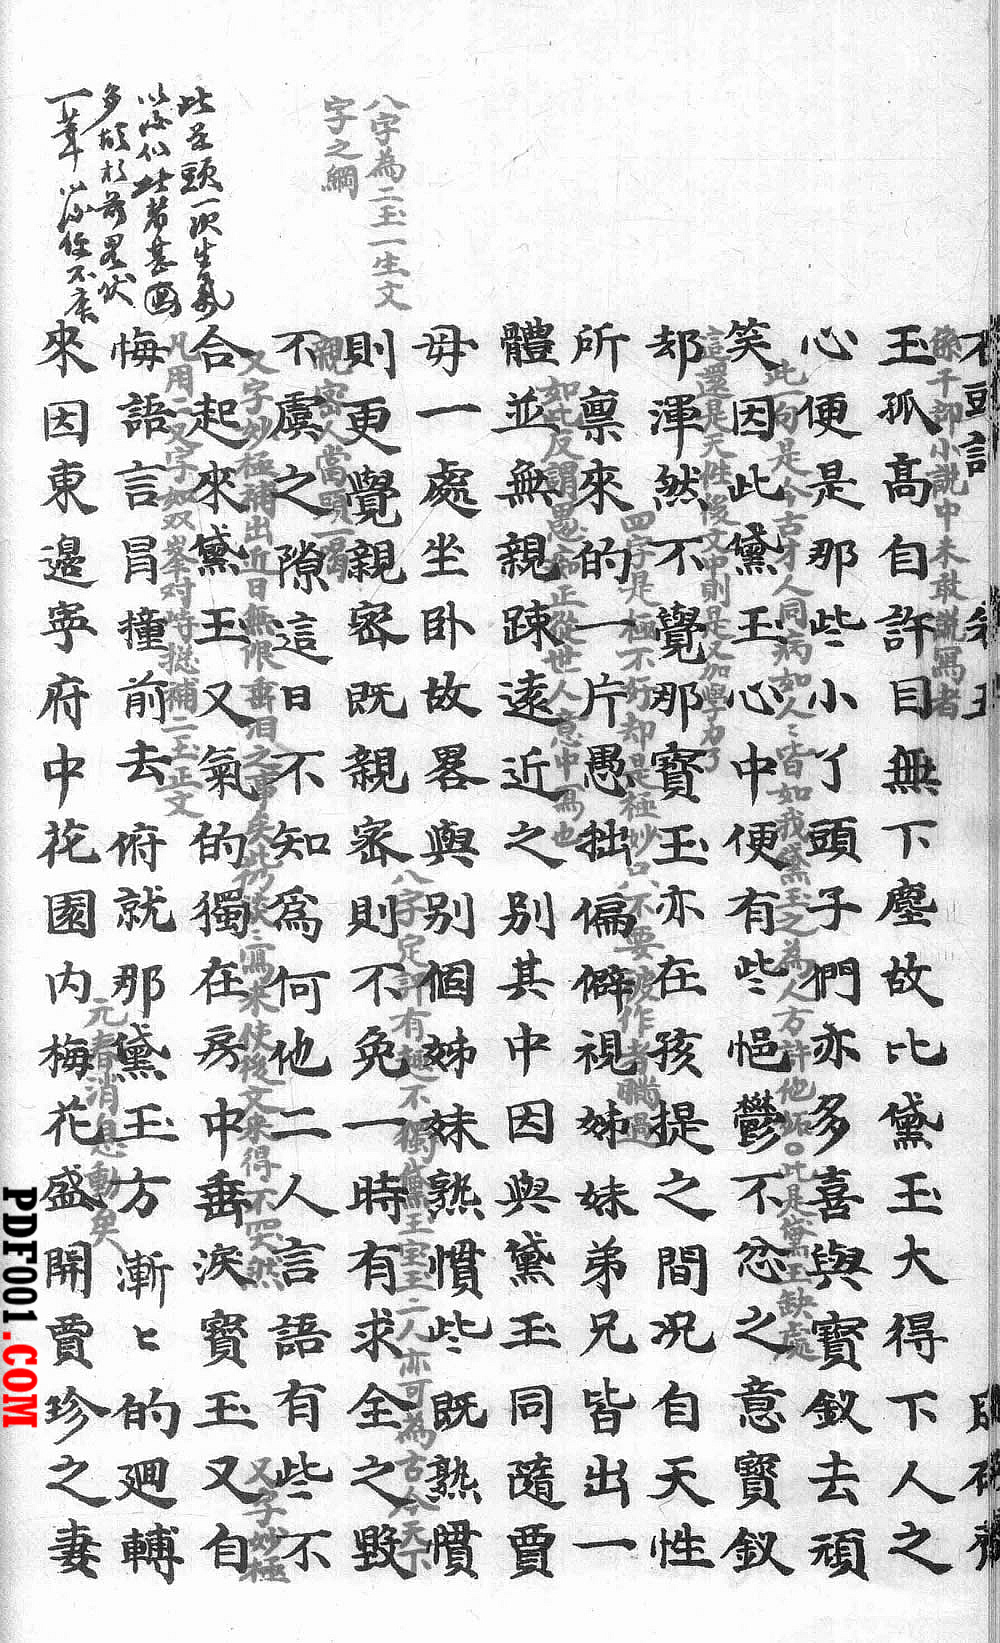 玉孤高自許目無下塵故比黛玉大得下人之
心便是那些小丫頭子們亦多喜與寶釵去頑
笑因此黛玉心中便有些悒鬱不忿之意寶釵
却渾然不覺那寶玉亦在孩提之間况自天性
所禀來的一片愚拙偏僻視姊妹弟兄皆出一
體並無親踈遠近之别其中因與黛玉同隨賈
母一處坐卧故畧與别個姊妹熟慣些既熟慣
則更覺親密既親密則不免一時有求全之毀
不虞之隙這日不知為何他二人言語有些不
合起來黛玉又氣的獨在房中垂淚寶玉又自
悔語言冒撞前去俯就那黛玉方漸〻的廻轉
來因東邊寧府中花園内梅花盛開賈珍之妻
八字為二玉一生文
字之綱
此是頭一次生氣
這還是天性後文中則是又加學力了
此一句是今古才人同病如人〻皆如我黛玉之為人方許他妬○此是黛玉缺處
四字是極不好却是極妙只不要被作者瞞過
如此反謂愚痴正從世人意中寫也
八字定評有趣不獨黛玉寶玉二人亦可為古今天下
親密人當頭一喝
又字妙極補出近日無限垂淚之事矣此仍淡〻寫來使後文來得不突然
又字妙極
凡用二又字如双峯对峙捴補二玉正文
元春消息動矣
PDF001.COM